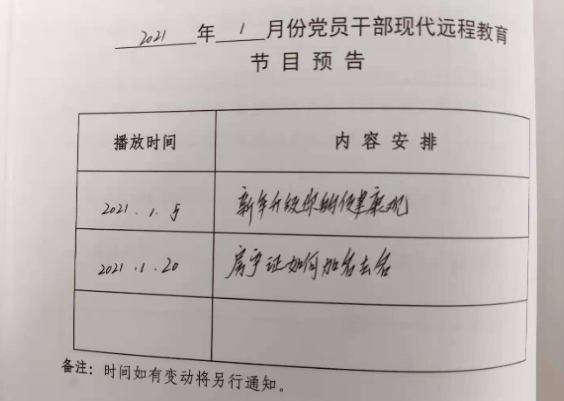 2021 年 1 月份党员干部现代远程教育
节目预告
播放时间 内容安排
2021.1.5 新年升级你的健康观
2021.1.20 房产证如何加名去名
备注：时间如有变动将另行通知。